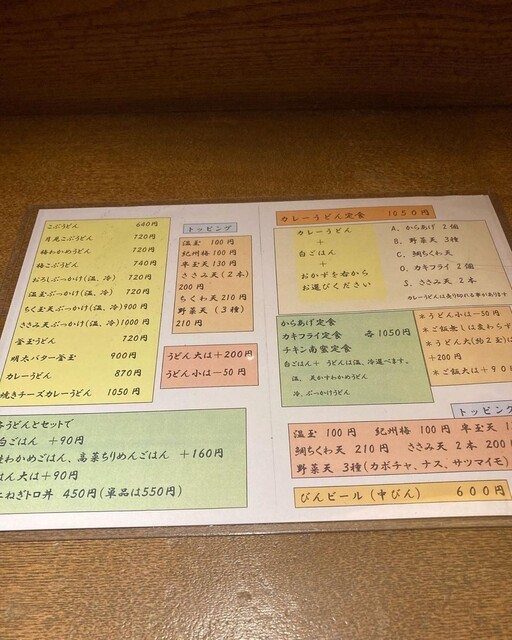 こぶうどん 640円
月見こぶうどん 720円
梅わかめうどん 720円
梅こぶうどん 740円
おろしぶっかけ(温、冷) 720円
温玉ぶっかけ(温、冷) 720円
ちく玉天ぶっかけ(温、冷) 900円
ささみ天ぶっかけ(温、冷) 1000円
釜玉うどん 720円
明太バター釜玉 900円
カレーうどん 870円
焼きチーズカレーうどん 1050円
トッピング
温玉 100円
紀州梅 100円
半玉天 130円
ささみ天(2本)
200円
ちくわ天 210円
野菜天(3種)
210円
うどん大は+200円
うどん小は−50円
うどんとセットで
白ごはん +90円
わかめごはん、高菜ちりめんごはん +160円
はん大は+90円
ねぎトロ丼 450円(単品は550円)
カレーうどん定食 1050円
カレーうどん
+
白ごはん
+
おかずを右から
お選びください
A. からあげ 2個
B. 野菜天 3種
C. 鯛ちくわ天
O. カキフライ 2個
S. ささみ天 2本
カレーうどんは売り切れる事があります
からあげ定食
カキフライ定食 各1050円
チキン南蛮定食
白ごはん+うどんは温、冷選べます。
温、天かすわかめうどん
冷、ぶっかけうどん
*うどん小は−50円
*ご飯無しは変わらず
*うどん大(約2玉)は
+200円
*ご飯大は+90
トッピング
温玉 100円 紀州梅 100円 半玉天 1
鯛ちくわ天 210円 ささみ天 2本 200
野菜天 3種(カボチャ、ナス、サツマイモ)
びんビール(中びん) 600円